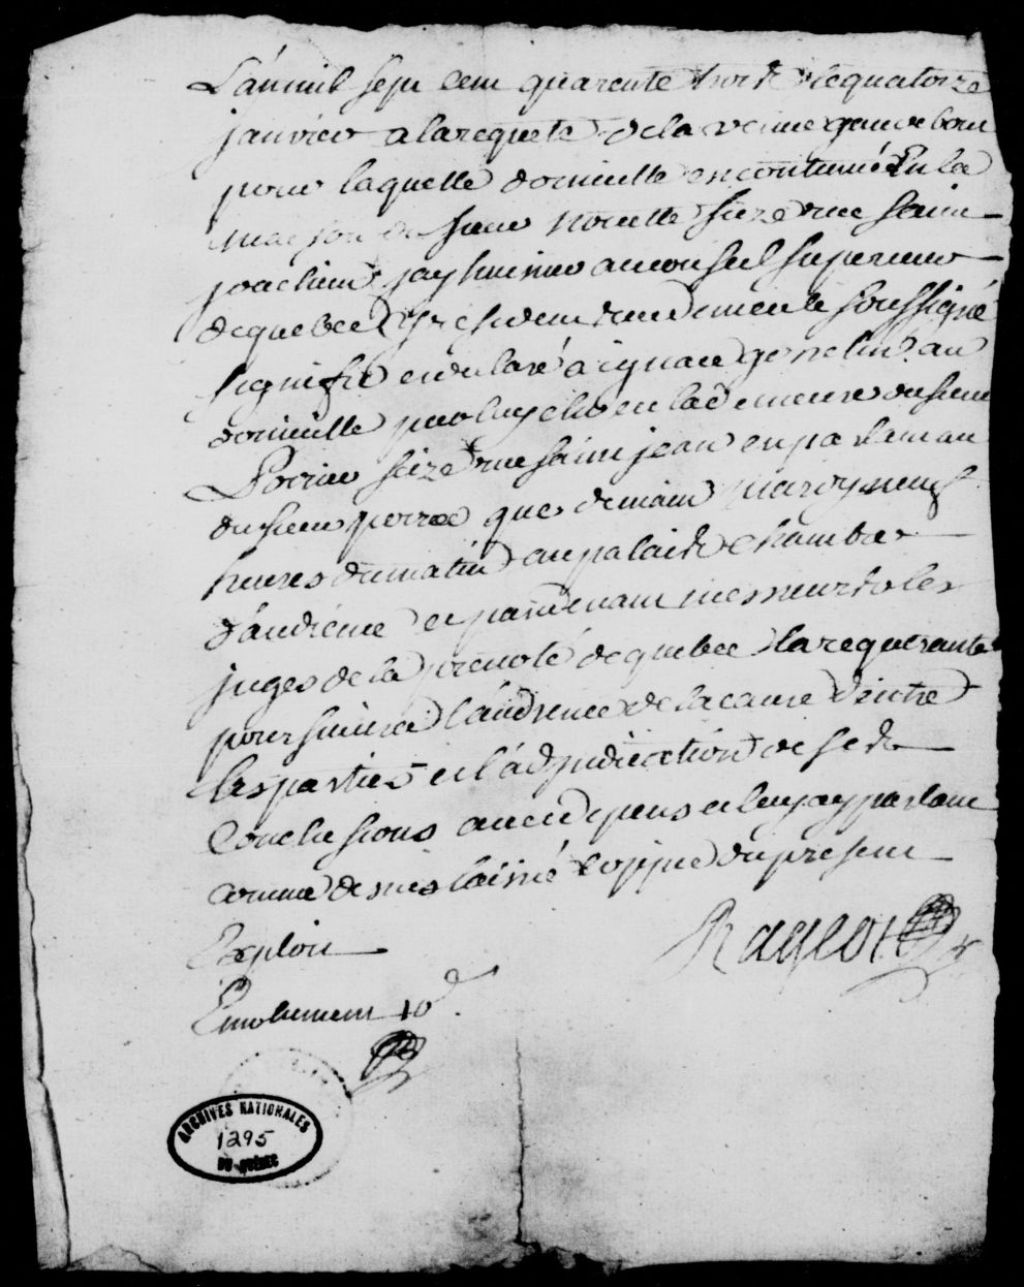 L'an mil sept cent quarente trois le quatorze
janvier a la requeste de la veuve
pour laquelle domicille est continué En la
maison du sieur Nouette size rue saint
joachim jay huissier au conseil superieur
de quebec y residant rue demeule soussigné
signifié et declaré a ignace gosselin au
domicille par luy elu en la demeure du sieur
Poirier size rue saint jean en parlant au
du sieur que demain mardy neuf
heures du matin au palais chambre
d'audience et pardevant messieurs les
juges de la prevoté de quebec la requerante
poursuivra l'audience de la cause d'entre
les parties et l'adjudication de sesd
Conclusions avec depens et luy ay parlant
comme dessus laissé coppie du present
Exploit
Rageot
Emolument 10
ARCHIVES NATIONALES
1295
DU QUÉBEC